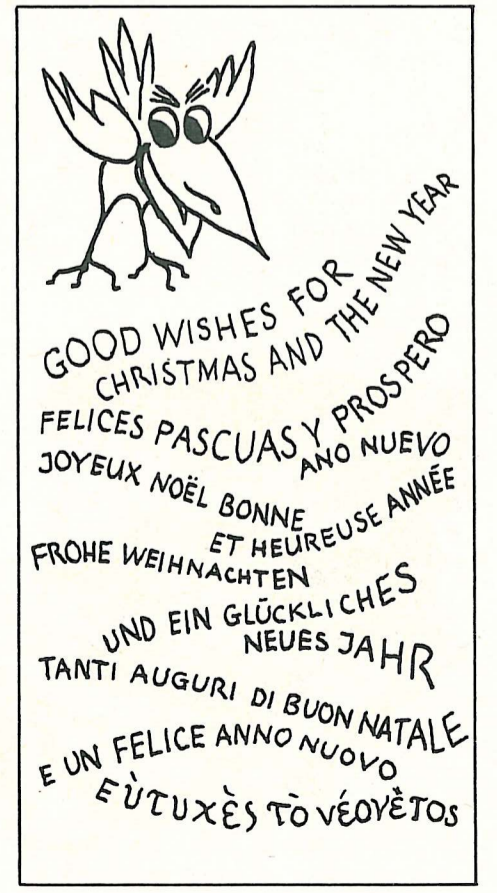 GOOD WISHES FOR
CHRISTMAS AND THE NEW YEAR
FELICES PASCUAS Y PROSPERO
ANO NUEVO
JOYEUX NOËL BONNE
ET HEUREUSE ANNÉE
FROHE WEIHNACHTEN
UND EIN GLÜCKLICHES
NEUES JAHR
TANTI AUGURI DI BUON NATALE
E UN FELICE ANNO NUOVO
εὐτυχὲς τὸ νέον ἔτος